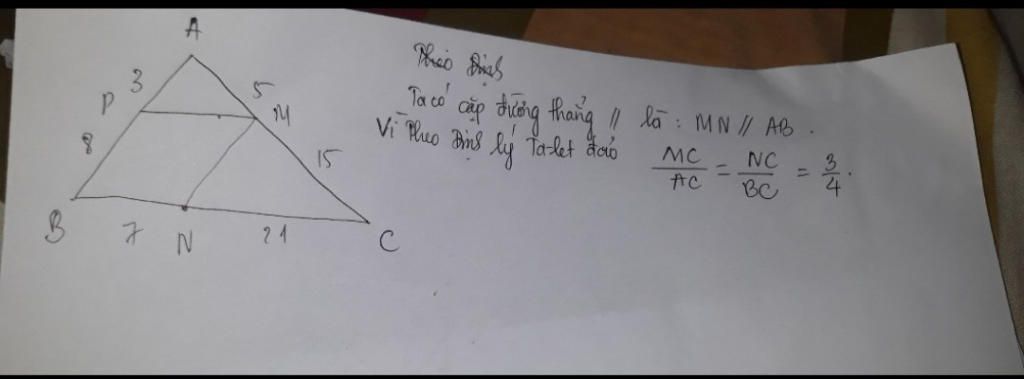 A
3
5
P
M
8
15
B
7
N
21
C
Theo Định
Ta có cặp đường thẳng // là : MN // AB .
Vì Theo Định lý Ta-let đảo MC/AC = NC/BC = 3/4 .